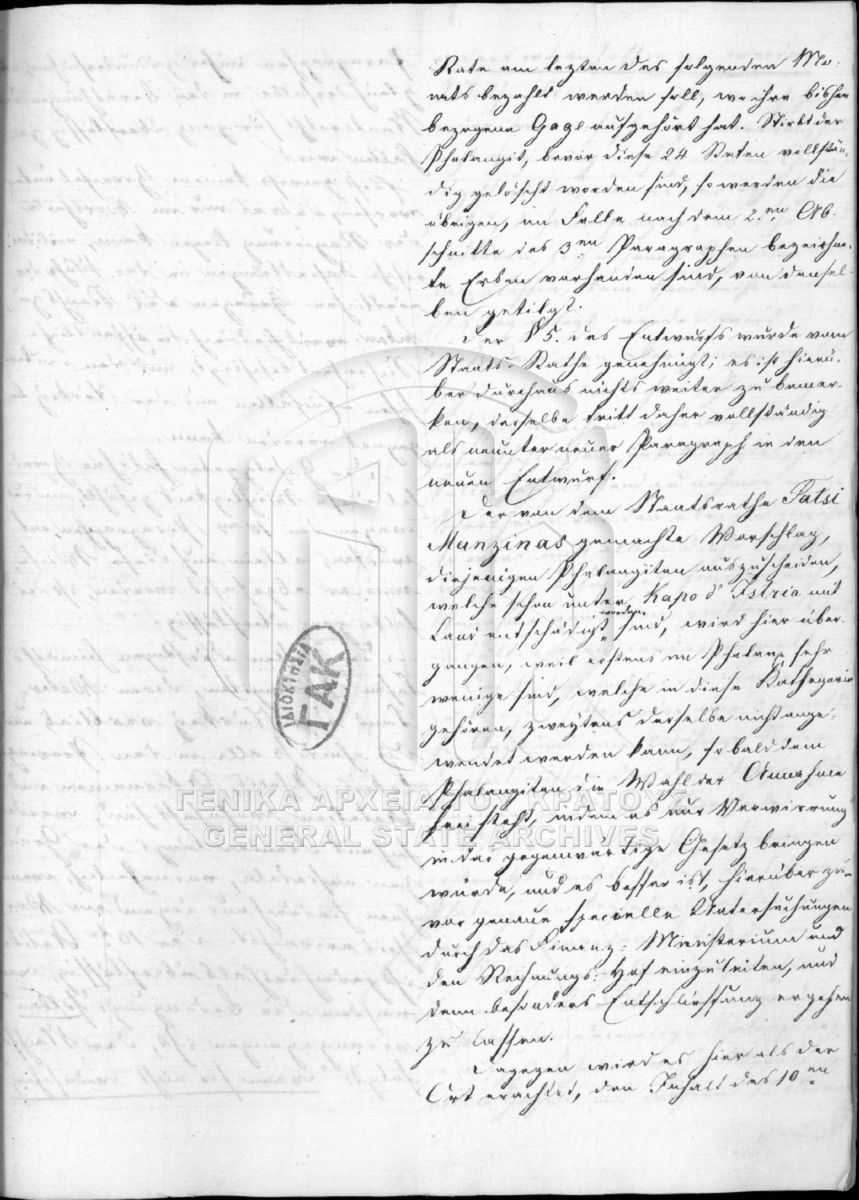 Rate am lezten des folgenden Mo-
nats bezahlt werden soll, wo ihre bisher
bezogene Gage aufgehört hat. Stirbt der
Phalangit, bevor diese 24 Raten vollstän-
dig gelöscht worden sind, so werden die
übrigen, im Falle nach dem 2.en Ab-
schnitte des 3en Paragraphen bezeichne-
te Erben vorhanden sind, von densel-
ben getilgt.
Der §5. des Entwurfs wurde vom
Staats-Rathe genehmigt; es ist hierü-
ber durchaus nichts weiter zu bemer-
ken, derselbe tritt daher vollständig
als neunter neuer Paragraph in den
neuen Entwurf.
Der von dem Staatsrathe Tatsi
Manzinas gemachte Vorschlag,
diejenigen Phalangiten auszuscheiden,
welche schon unter Kapo d'Istria mit
Land entschädigt worden sind, wird hier über-
gangen, weil erstens im Phalanx sehr
wenige sind, welche in diese Kathegorie
gehören, zweytens derselbe nicht ange-
wendet werden kann, so bald dem
Phalangiten die Wahl der Annahme
frei steht, indem es nur Verwirrung
in das gegenwärtige Gesetz bringen
würde, und es besser ist, hierüber zu-
vor genaue specielle Untersuchungen
durch das Finanz-Ministerium und
den Rechnungs-Hof einzuleiten, und
dann besonders Entschließung ergehen
zu lassen.
Dagegen wird es hier als der
Ort erachtet, den Inhalt des 10en
ΙΔΙΟΚΤΗΣΙΑ
ΓΑΚ
ΓΕΝΙΚΑ ΑΡΧΕΙΑ ΤΟΥ ΚΡΑΤΟΥΣ
GENERAL STATE ARCHIVES